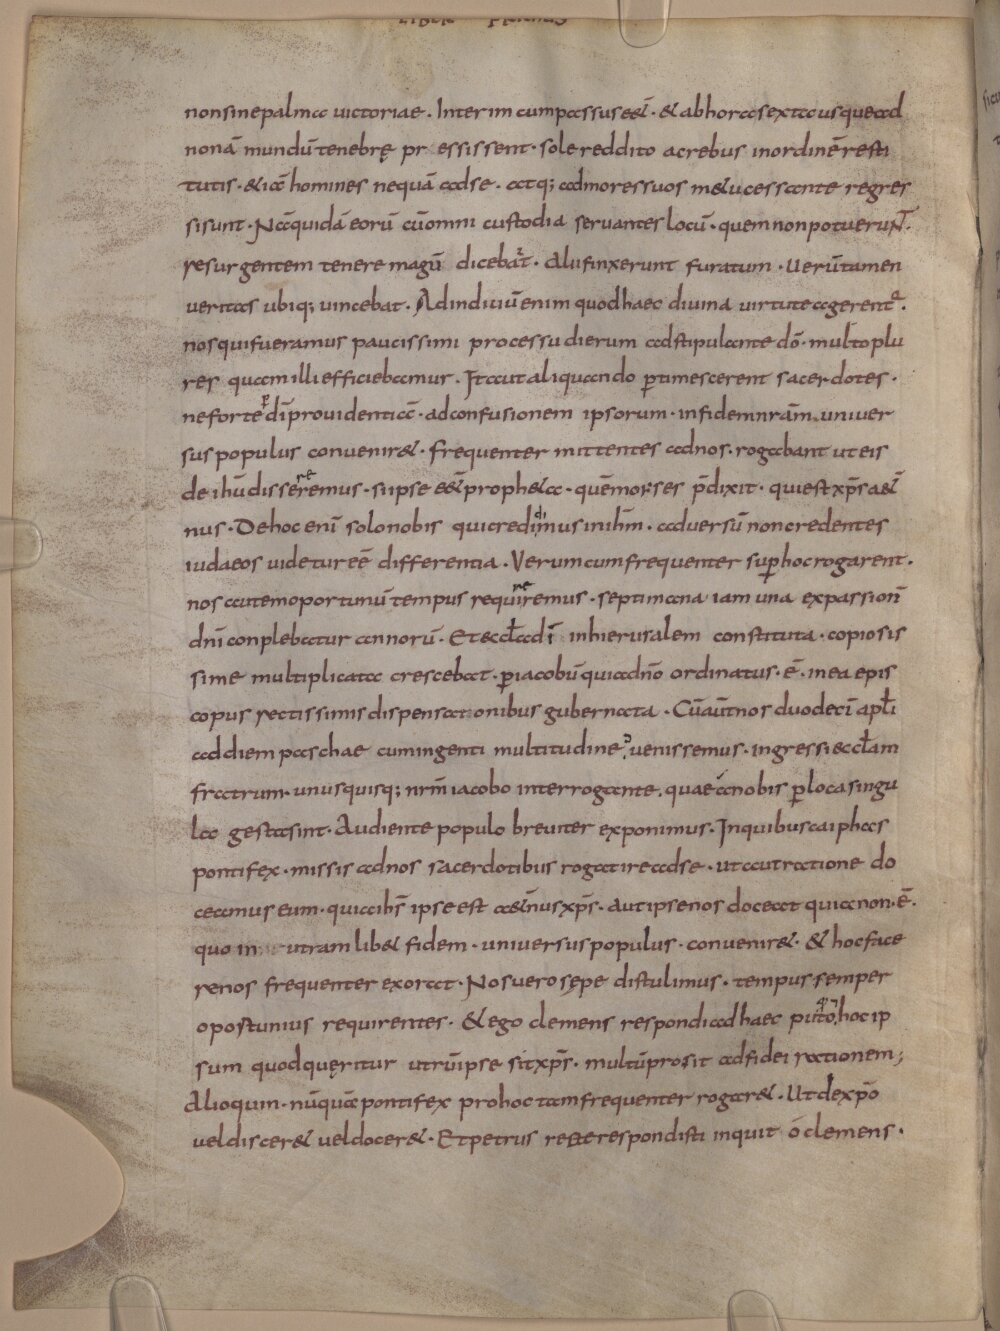 non sine palma uictoriae. Interim cum passus eēt. & ab hora sexta usque ad
nonā mundū tenebrę pr essissent. sole reddito ac rebus in ordinē resti
tutis. & iā homines nequā ad se. atq; ad mores suos metu cessante regres
si sunt. Nā quidā eorū cū omni custodia seruantes locū. quem non potuerunt
resurgentem tenere magū dicebant. Alii finxerunt furatum. Uerūtamen
ueritas ubiq; uincebat. Ad indiciū enim quod haec diuina uirtute agerent͛.
nos qui fueramus paucissimi processu dierum adstipulante dō. multo plu
res quam illi efficiebamur. Ita ut aliquando ptimescerent sacerdotes.
ne forte p dī prouidentiā. ad confusionem ipsorum. in fidem nrām uniuer
sus populus conuenir&. frequenter mittentes ad nos. rogabant ut eis
de ihū dissereremus. si ipse eēt proph&a. quē moyses p̄dixit. qui est xp̄s aet̄
nus. De hoc enī solo nobis qui credimus in ihm̄. aduersū non credentes
iudaeos uidetur eē differentia. Verum cum frequenter sup hoc rogarent.
nos autem oportunū tempus requireremus. septimana iam una ex passionē
dnī conplebatur annorū. Et eccła dī in hierusalem constituta. copiosis
sime multiplicata crescebat. p iacobū qui a dn̄o ordinatus. ē. in ea epis
copus rectissimis dispensationibus gubernata. Cū aūt nos duodecī apłi
ad diem paschae cum ingenti multitudine uenissemus. ingressi eccłam
fratrum. unusquisq; nrm̄ iacobo interrogante. quae a nobis p loca singu
la gesta sint. Audiente populo breuiter exponimus. In quibus caiphas
pontifex. missis ad nos sacerdotibus rogat ire ad se. ut aut ratione do
ceamus eum. quia ihs̄ ipse est aet̄nus xp̄s. aut ipse nos doceat quia non. ē.
quo in utram lib& fidem. uniuersus populus. conuenir&. & hoc face
re nos frequenter exorat. Nos uero sępe distulimus. tempus semper
opostunius requirentes. & ego clemens respondi ad haec puto. hoc ip
sum quod quęritur utrū ipse sit xp̄s. multū prosit ad fidei rationem;
Alioquin. nūquā pontifex pro hoc tam frequenter rogar&. Ut de xp̄o
uel discer& uel docer&. Et petrus recte respondisti inquit ó clemens.